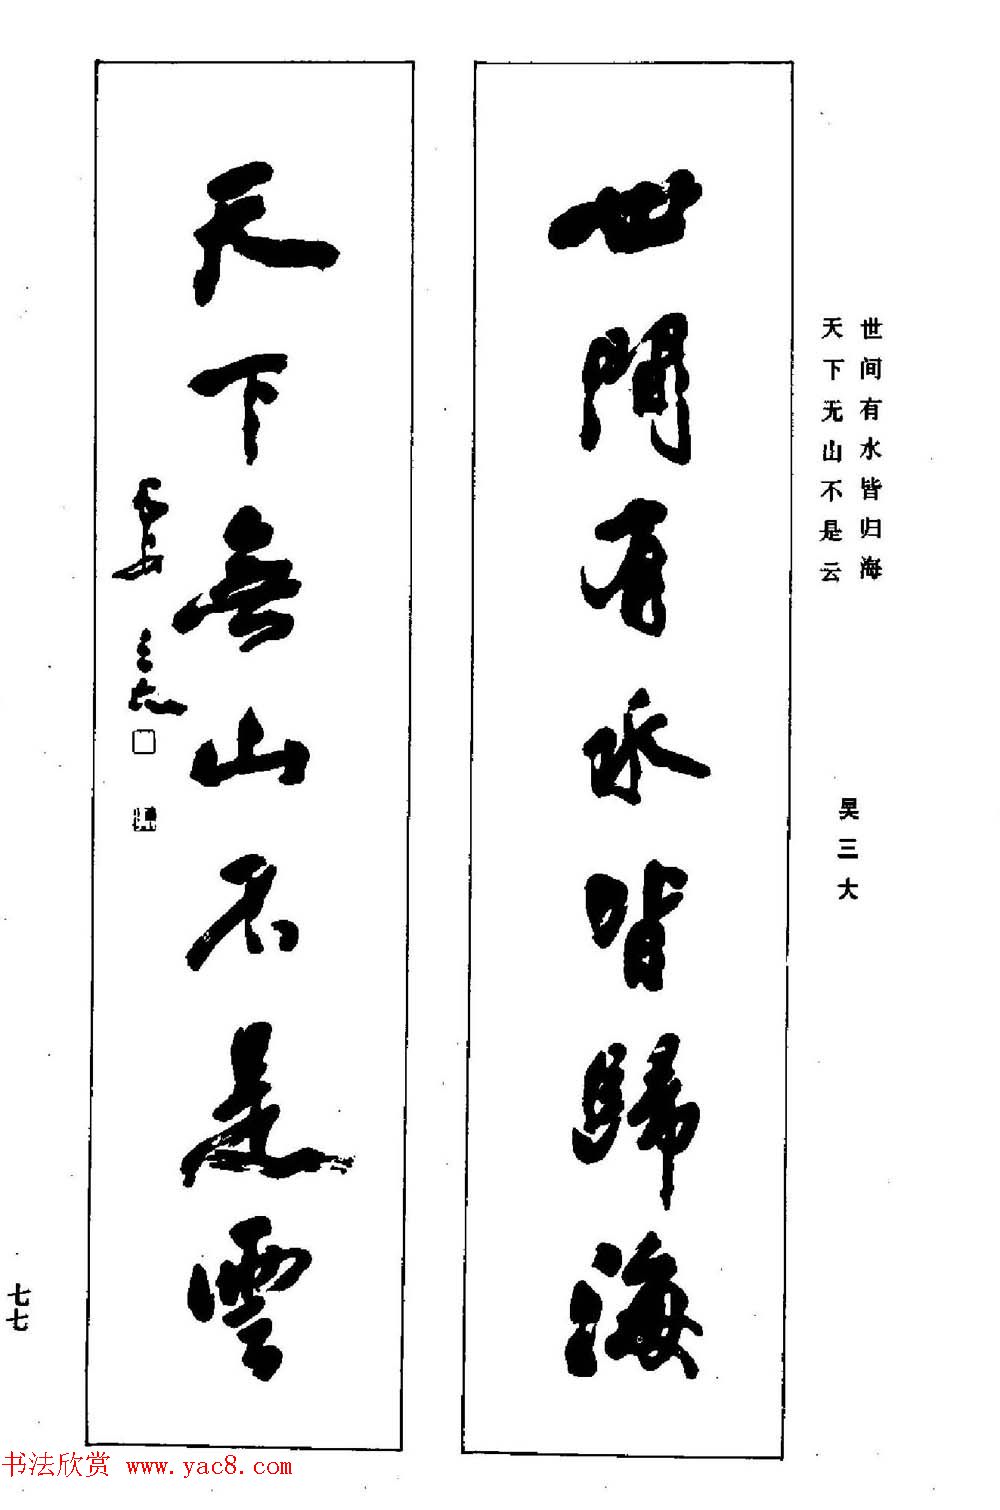 世间有水皆归海
天下无山不是云
吴三大
世間有水皆歸海
天下無山不是雲
長安
三大
七七
书法欣赏 www.yac8.com